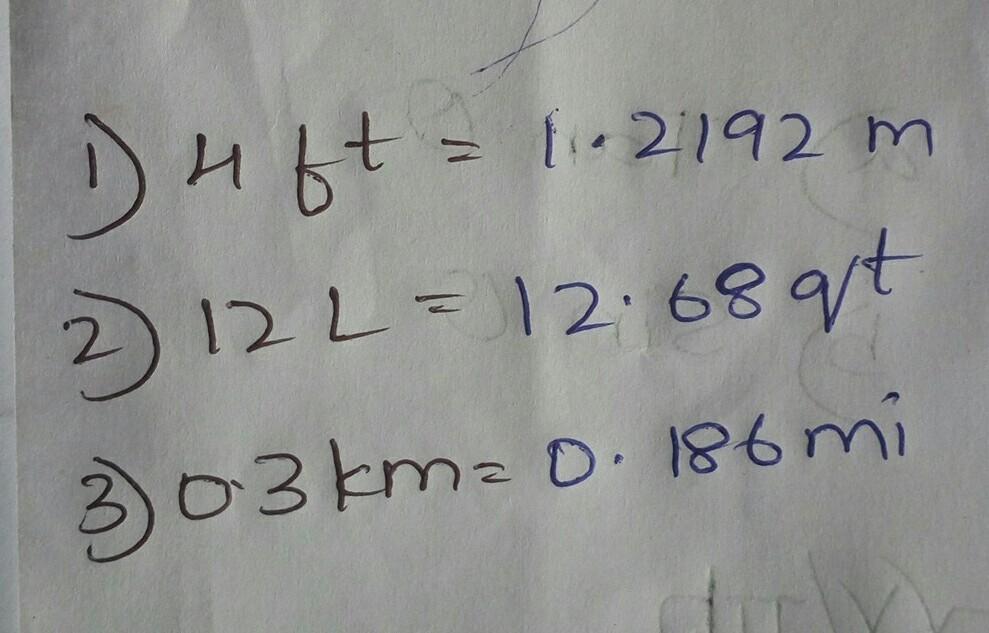 1) 4 ft = 1.2192 m
2) 12 L = 12.68 qt
3) 0.3 km = 0.186 mi